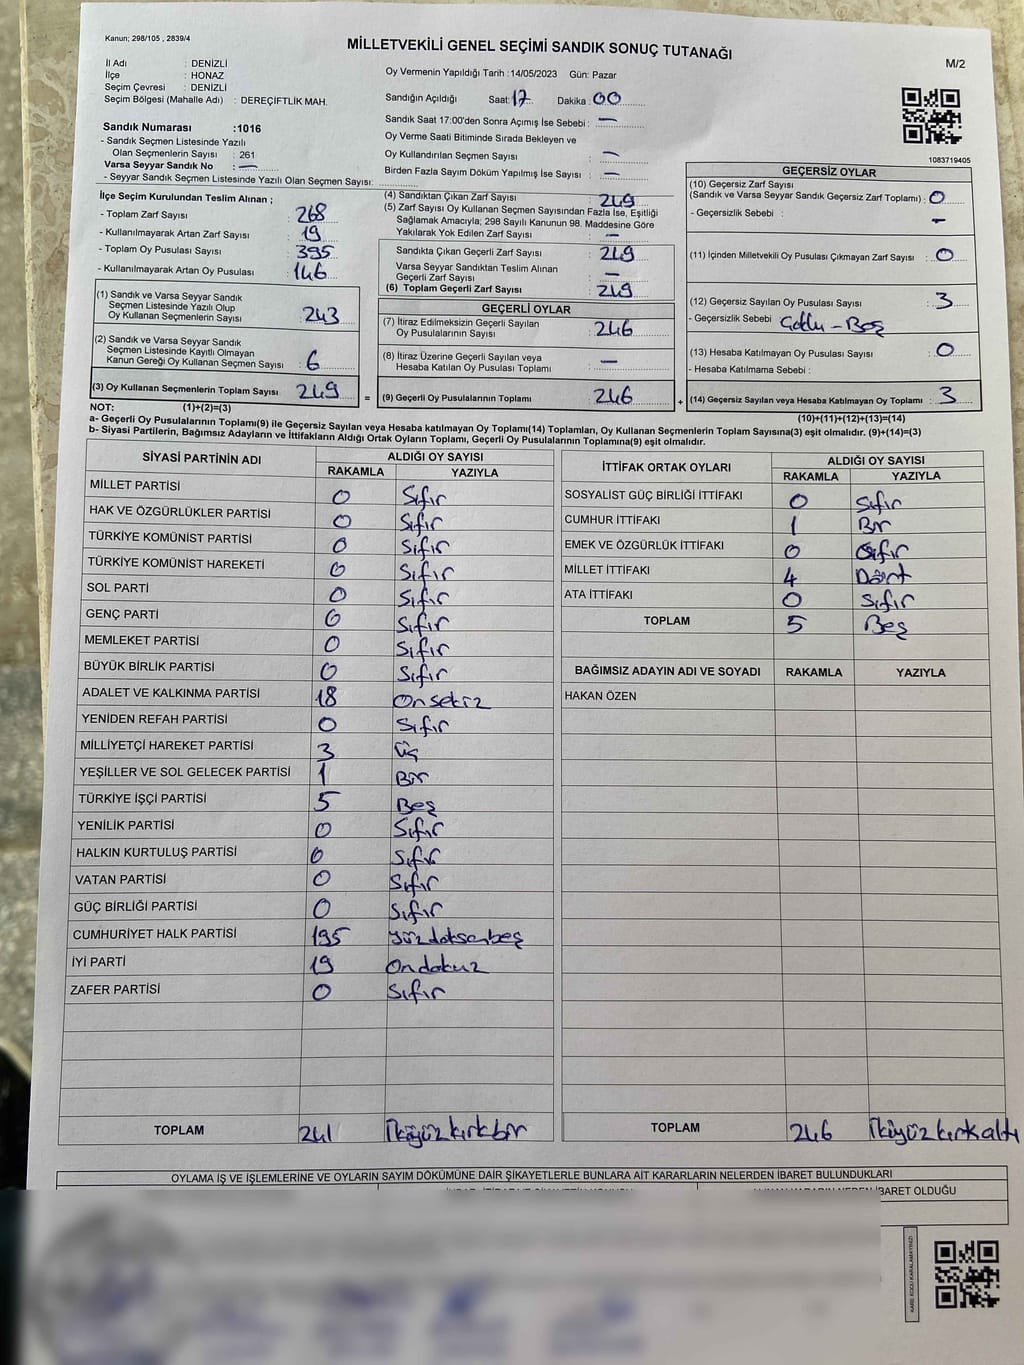 Kanun; 298/105 , 2839/4
MİLLETVEKİLİ GENEL SEÇİMİ SANDIK SONUÇ TUTANAĞI
M/2
İl Adı : DENİZLİ
İlçe : HONAZ
Seçim Çevresi : DENİZLİ
Seçim Bölgesi (Mahalle Adı) : DEREÇİFTLİK MAH.
Sandık Numarası :1016
- Sandık Seçmen Listesinde Yazılı
Olan Seçmenlerin Sayısı : 261
Varsa Seyyar Sandık No : —
- Seyyar Sandık Seçmen Listesinde Yazılı Olan Seçmen Sayısı:
Oy Vermenin Yapıldığı Tarih :14/05/2023 Gün: Pazar
Sandığın Açıldığı Saat: 17 Dakika : 00
Sandık Saat 17:00'den Sonra Açımış İse Sebebi : —
Oy Verme Saati Bitiminde Sırada Bekleyen ve
Oy Kullandırılan Seçmen Sayısı : —
Birden Fazla Sayım Döküm Yapılmış İse Sayısı : —
1083719405
İlçe Seçim Kurulundan Teslim Alınan ;
- Toplam Zarf Sayısı : 268
- Kullanılmayarak Artan Zarf Sayısı : 19
- Toplam Oy Pusulası Sayısı : 395
- Kullanılmayarak Artan Oy Pusulası : 146
(1) Sandık ve Varsa Seyyar Sandık
Seçmen Listesinde Yazılı Olup
Oy Kullanan Seçmenlerin Sayısı : 243
(2) Sandık ve Varsa Seyyar Sandık
Seçmen Listesinde Kayıtlı Olmayan
Kanun Gereği Oy Kullanan Seçmen Sayısı : 6
(3) Oy Kullanan Seçmenlerin Toplam Sayısı : 249
(4) Sandıktan Çıkan Zarf Sayısı : 249
(5) Zarf Sayısı Oy Kullanan Seçmen Sayısından Fazla İse, Eşitliği
Sağlamak Amacıyla; 298 Sayılı Kanunun 98. Maddesine Göre
Yakılarak Yok Edilen Zarf Sayısı : —
Sandıkta Çıkan Geçerli Zarf Sayısı : 249
Varsa Seyyar Sandıktan Teslim Alınan
Geçerli Zarf Sayısı : —
(6) Toplam Geçerli Zarf Sayısı : 249
GEÇERLİ OYLAR
(7) İtiraz Edilmeksizin Geçerli Sayılan
Oy Pusulalarının Sayısı : 246
(8) İtiraz Üzerine Geçerli Sayılan veya
Hesaba Katılan Oy Pusulası Toplamı : —
= (9) Geçerli Oy Pusulalarının Toplamı : 246
GEÇERSİZ OYLAR
(10) Geçersiz Zarf Sayısı
(Sandık ve Varsa Seyyar Sandık Geçersiz Zarf Toplamı) : 0
- Geçersizlik Sebebi : —
(11) İçinden Milletvekili Oy Pusulası Çıkmayan Zarf Sayısı : 0
(12) Geçersiz Sayılan Oy Pusulası Sayısı : 3
- Geçersizlik Sebebi : Çoklu - Boş
(13) Hesaba Katılmayan Oy Pusulası Sayısı : 0
- Hesaba Katılmama Sebebi :
+ (14) Geçersiz Sayılan veya Hesaba Katılmayan Oy Toplamı : 3
NOT: (1)+(2)=(3)
(10)+(11)+(12)+(13)=(14)
a- Geçerli Oy Pusulalarının Toplamı(9) ile Geçersiz Sayılan veya Hesaba Katılmayan Oy Toplamı(14) Toplamları, Oy Kullanan Seçmenlerin Toplam Sayısına(3) eşit olmalıdır. (9)+(14)=(3)
b- Siyasi Partilerin, Bağımsız Adayların ve İttifakların Aldığı Ortak Oyların Toplamı, Geçerli Oy Pusulalarının Toplamına(9) eşit olmalıdır.
SİYASİ PARTİNİN ADI ALDIĞI OY SAYISI
RAKAMLA YAZIYLA
MİLLET PARTİSİ 0 Sıfır
HAK VE ÖZGÜRLÜKLER PARTİSİ 0 Sıfır
TÜRKİYE KOMÜNİST PARTİSİ 0 Sıfır
TÜRKİYE KOMÜNİST HAREKETİ 0 Sıfır
SOL PARTİ 0 Sıfır
GENÇ PARTİ 0 Sıfır
MEMLEKET PARTİSİ 0 Sıfır
BÜYÜK BİRLİK PARTİSİ 0 Sıfır
ADALET VE KALKINMA PARTİSİ 18 Onsekiz
YENİDEN REFAH PARTİSİ 0 Sıfır
MİLLİYETÇİ HAREKET PARTİSİ 3 Üç
YEŞİLLER VE SOL GELECEK PARTİSİ 1 Bir
TÜRKİYE İŞÇİ PARTİSİ 5 Beş
YENİLİK PARTİSİ 0 Sıfır
HALKIN KURTULUŞ PARTİSİ 0 Sıfır
VATAN PARTİSİ 0 Sıfır
GÜÇ BİRLİĞİ PARTİSİ 0 Sıfır
CUMHURİYET HALK PARTİSİ 195 Yüzdoksanbeş
İYİ PARTİ 19 Ondokuz
ZAFER PARTİSİ 0 Sıfır
TOPLAM 241 İkiyüzkırkbir
İTTİFAK ORTAK OYLARI ALDIĞI OY SAYISI
RAKAMLA YAZIYLA
SOSYALİST GÜÇ BİRLİĞİ İTTİFAKI 0 Sıfır
CUMHUR İTTİFAKI 1 Bir
EMEK VE ÖZGÜRLÜK İTTİFAKI 0 Sıfır
MİLLET İTTİFAKI 4 Dört
ATA İTTİFAKI 0 Sıfır
TOPLAM 5 Beş
BAĞIMSIZ ADAYIN ADI VE SOYADI RAKAMLA YAZIYLA
HAKAN ÖZEN
TOPLAM 246 İkiyüzkırkaltı
OYLAMA İŞ VE İŞLEMLERİNE VE OYLARIN SAYIM DÖKÜMÜNE DAİR ŞİKAYETLERLE BUNLARA AİT KARARLARIN NELERDEN İBARET BULUNDUKLARI
İBARET OLDUĞU
KARE KODU KARALAMAYINIZ!